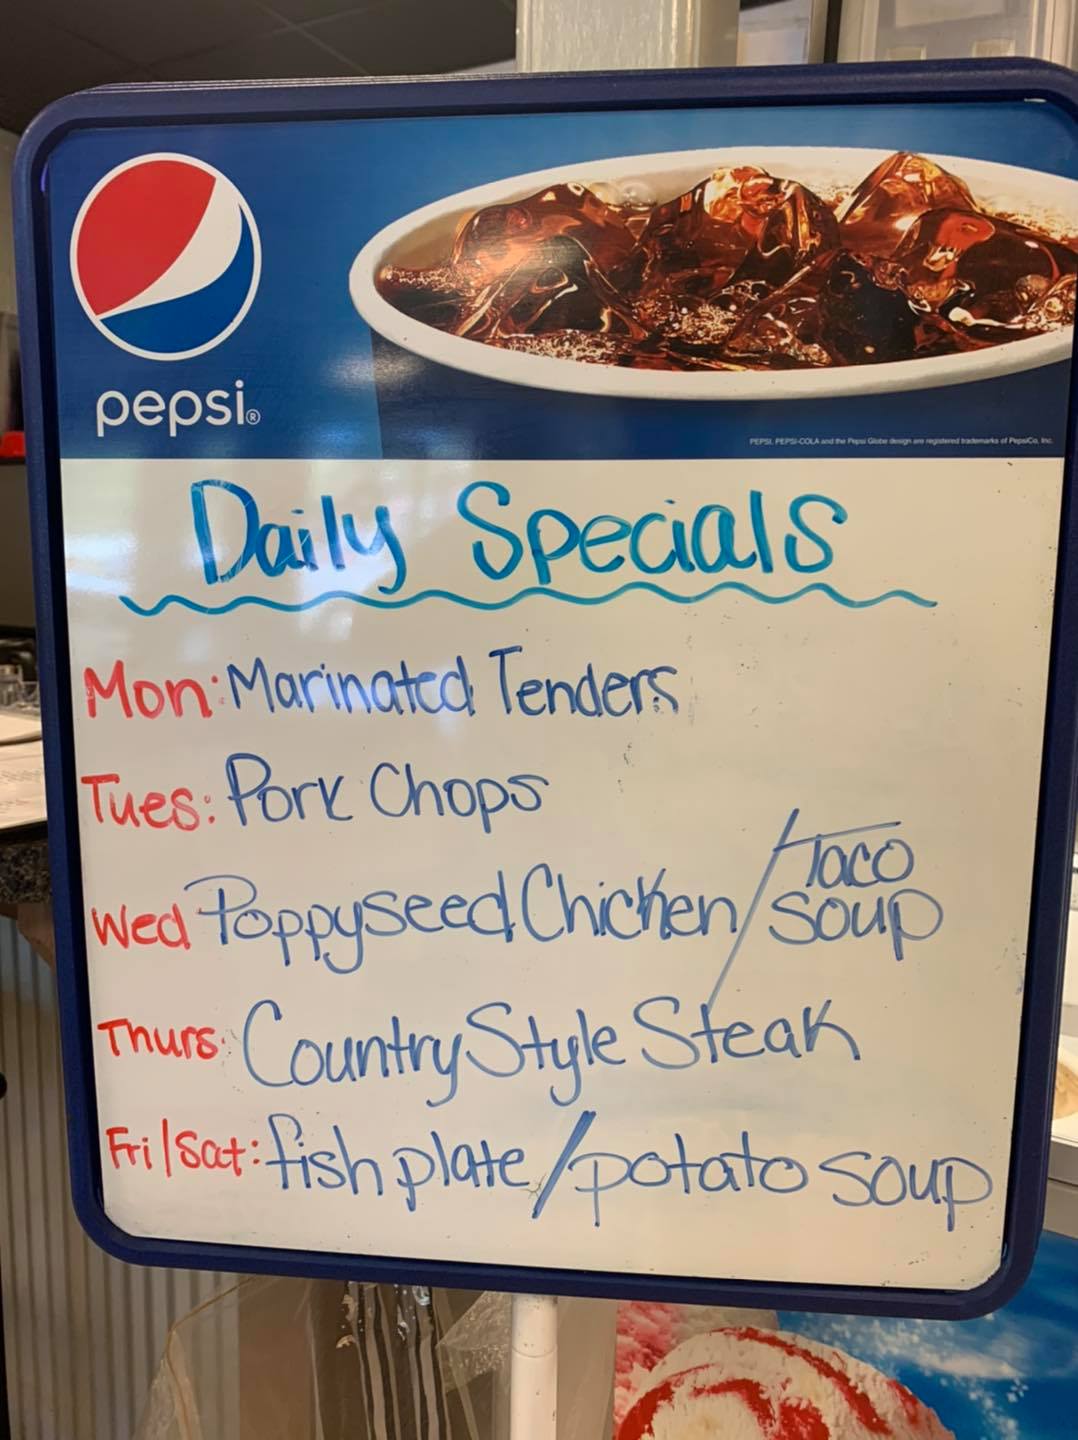 pepsi®
PEPSI, PEPSI-COLA and the Pepsi Globe design are registered trademarks of PepsiCo, Inc.
Daily Specials
Mon: Marinated Tenders
Tues: Pork Chops
Wed Poppyseed Chicken / Taco soup
Thurs: Country Style Steak
Fri/Sat: fish plate / potato soup